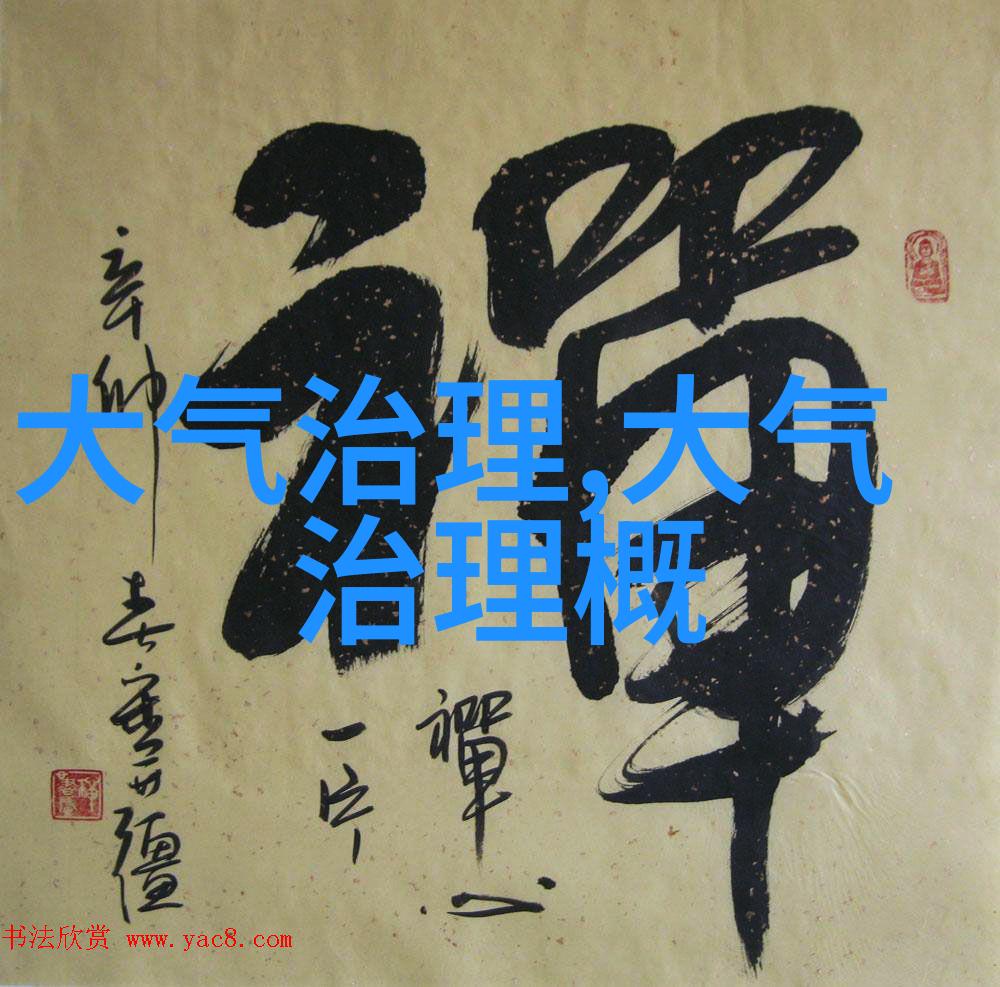 禪
禪心
一片
辛卯
大气治理,大气
治理概
书法欣赏 www.yac8.com